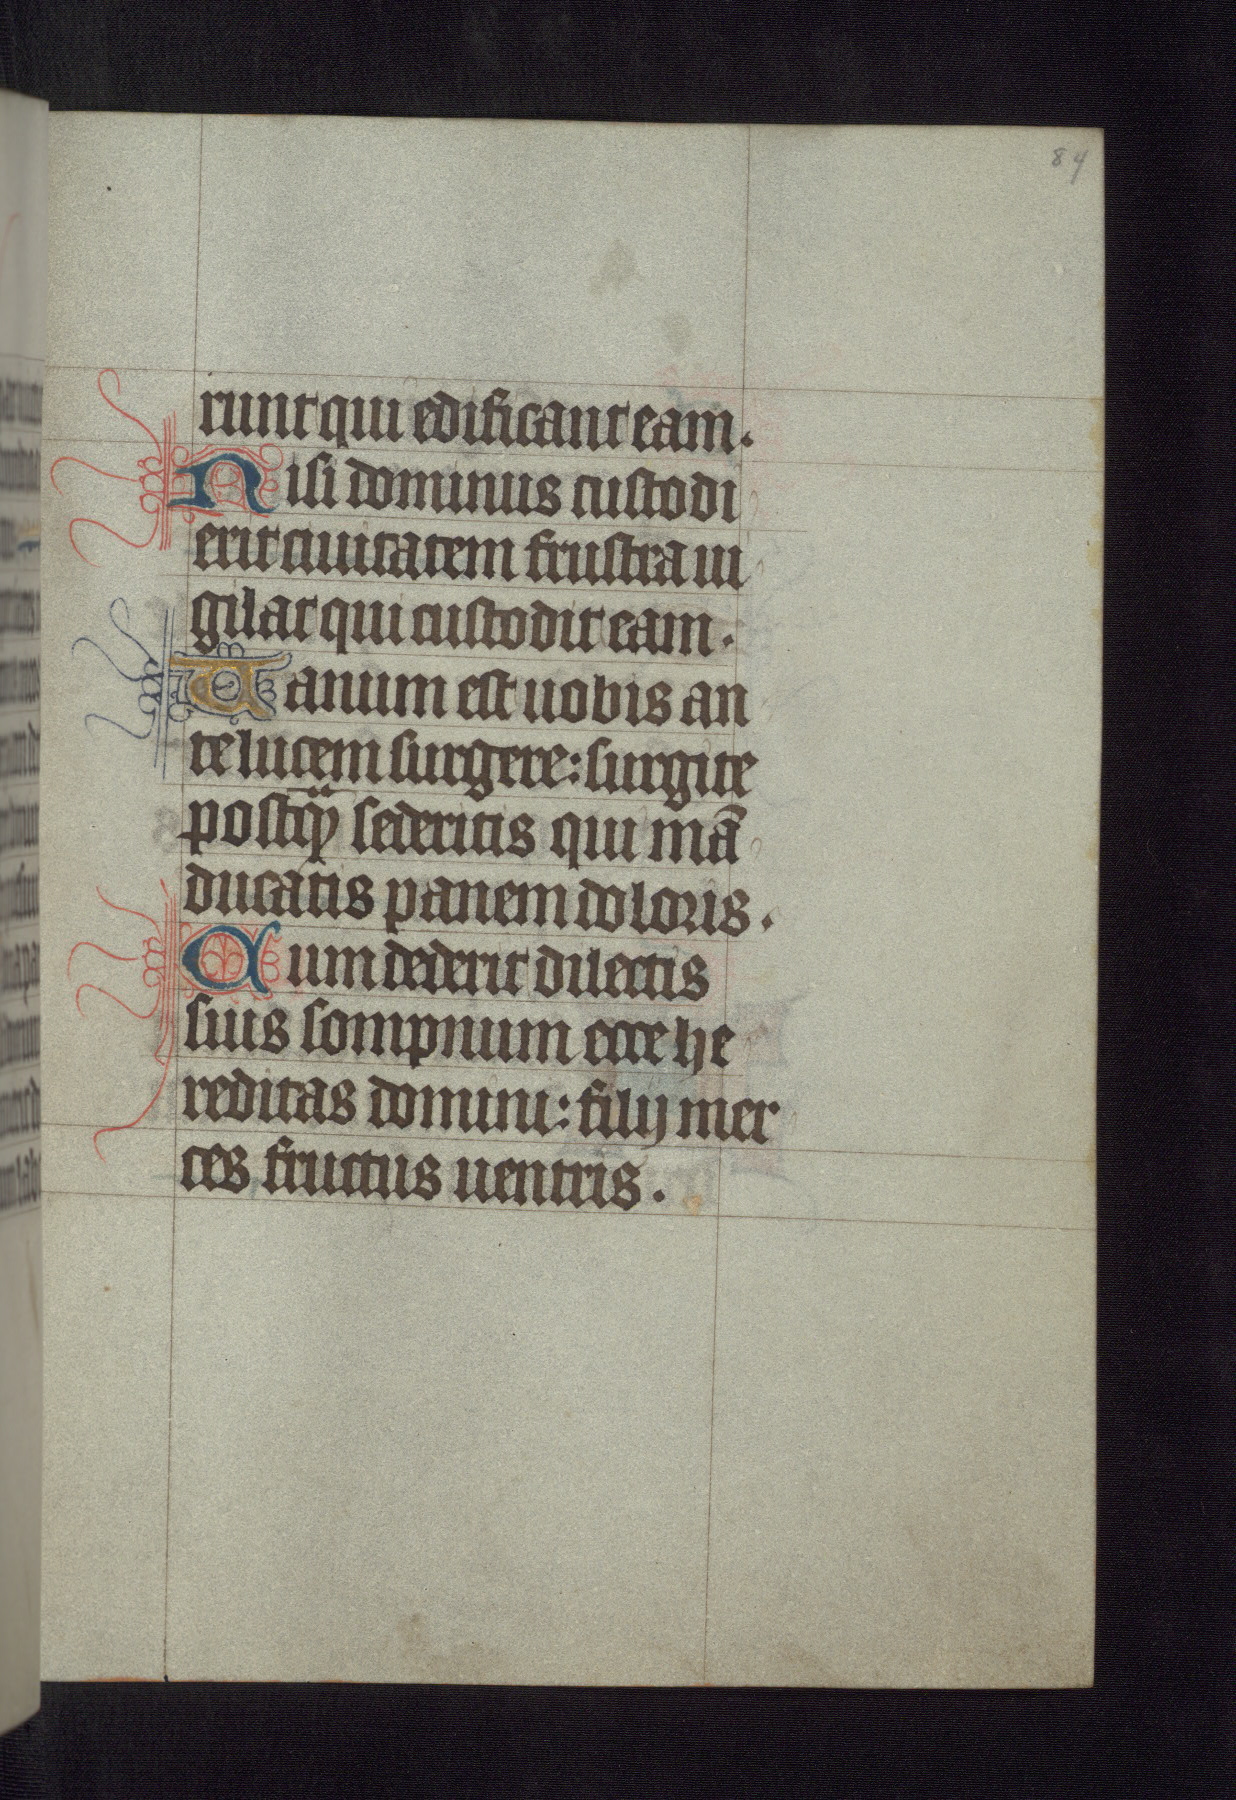 84
runt qui edificant eam.
Nisi dominus custodi
erit ciuitatem frustra ui
gilat qui custodit eam.
Uanum est uobis an
te lucem surgere: surgite
postq̃ sederitis qui mā
ducatis panem doloris.
Cum dederit dilectis
suis sompnum ecce he
reditas domini: filij mer
ces fructus uentris.